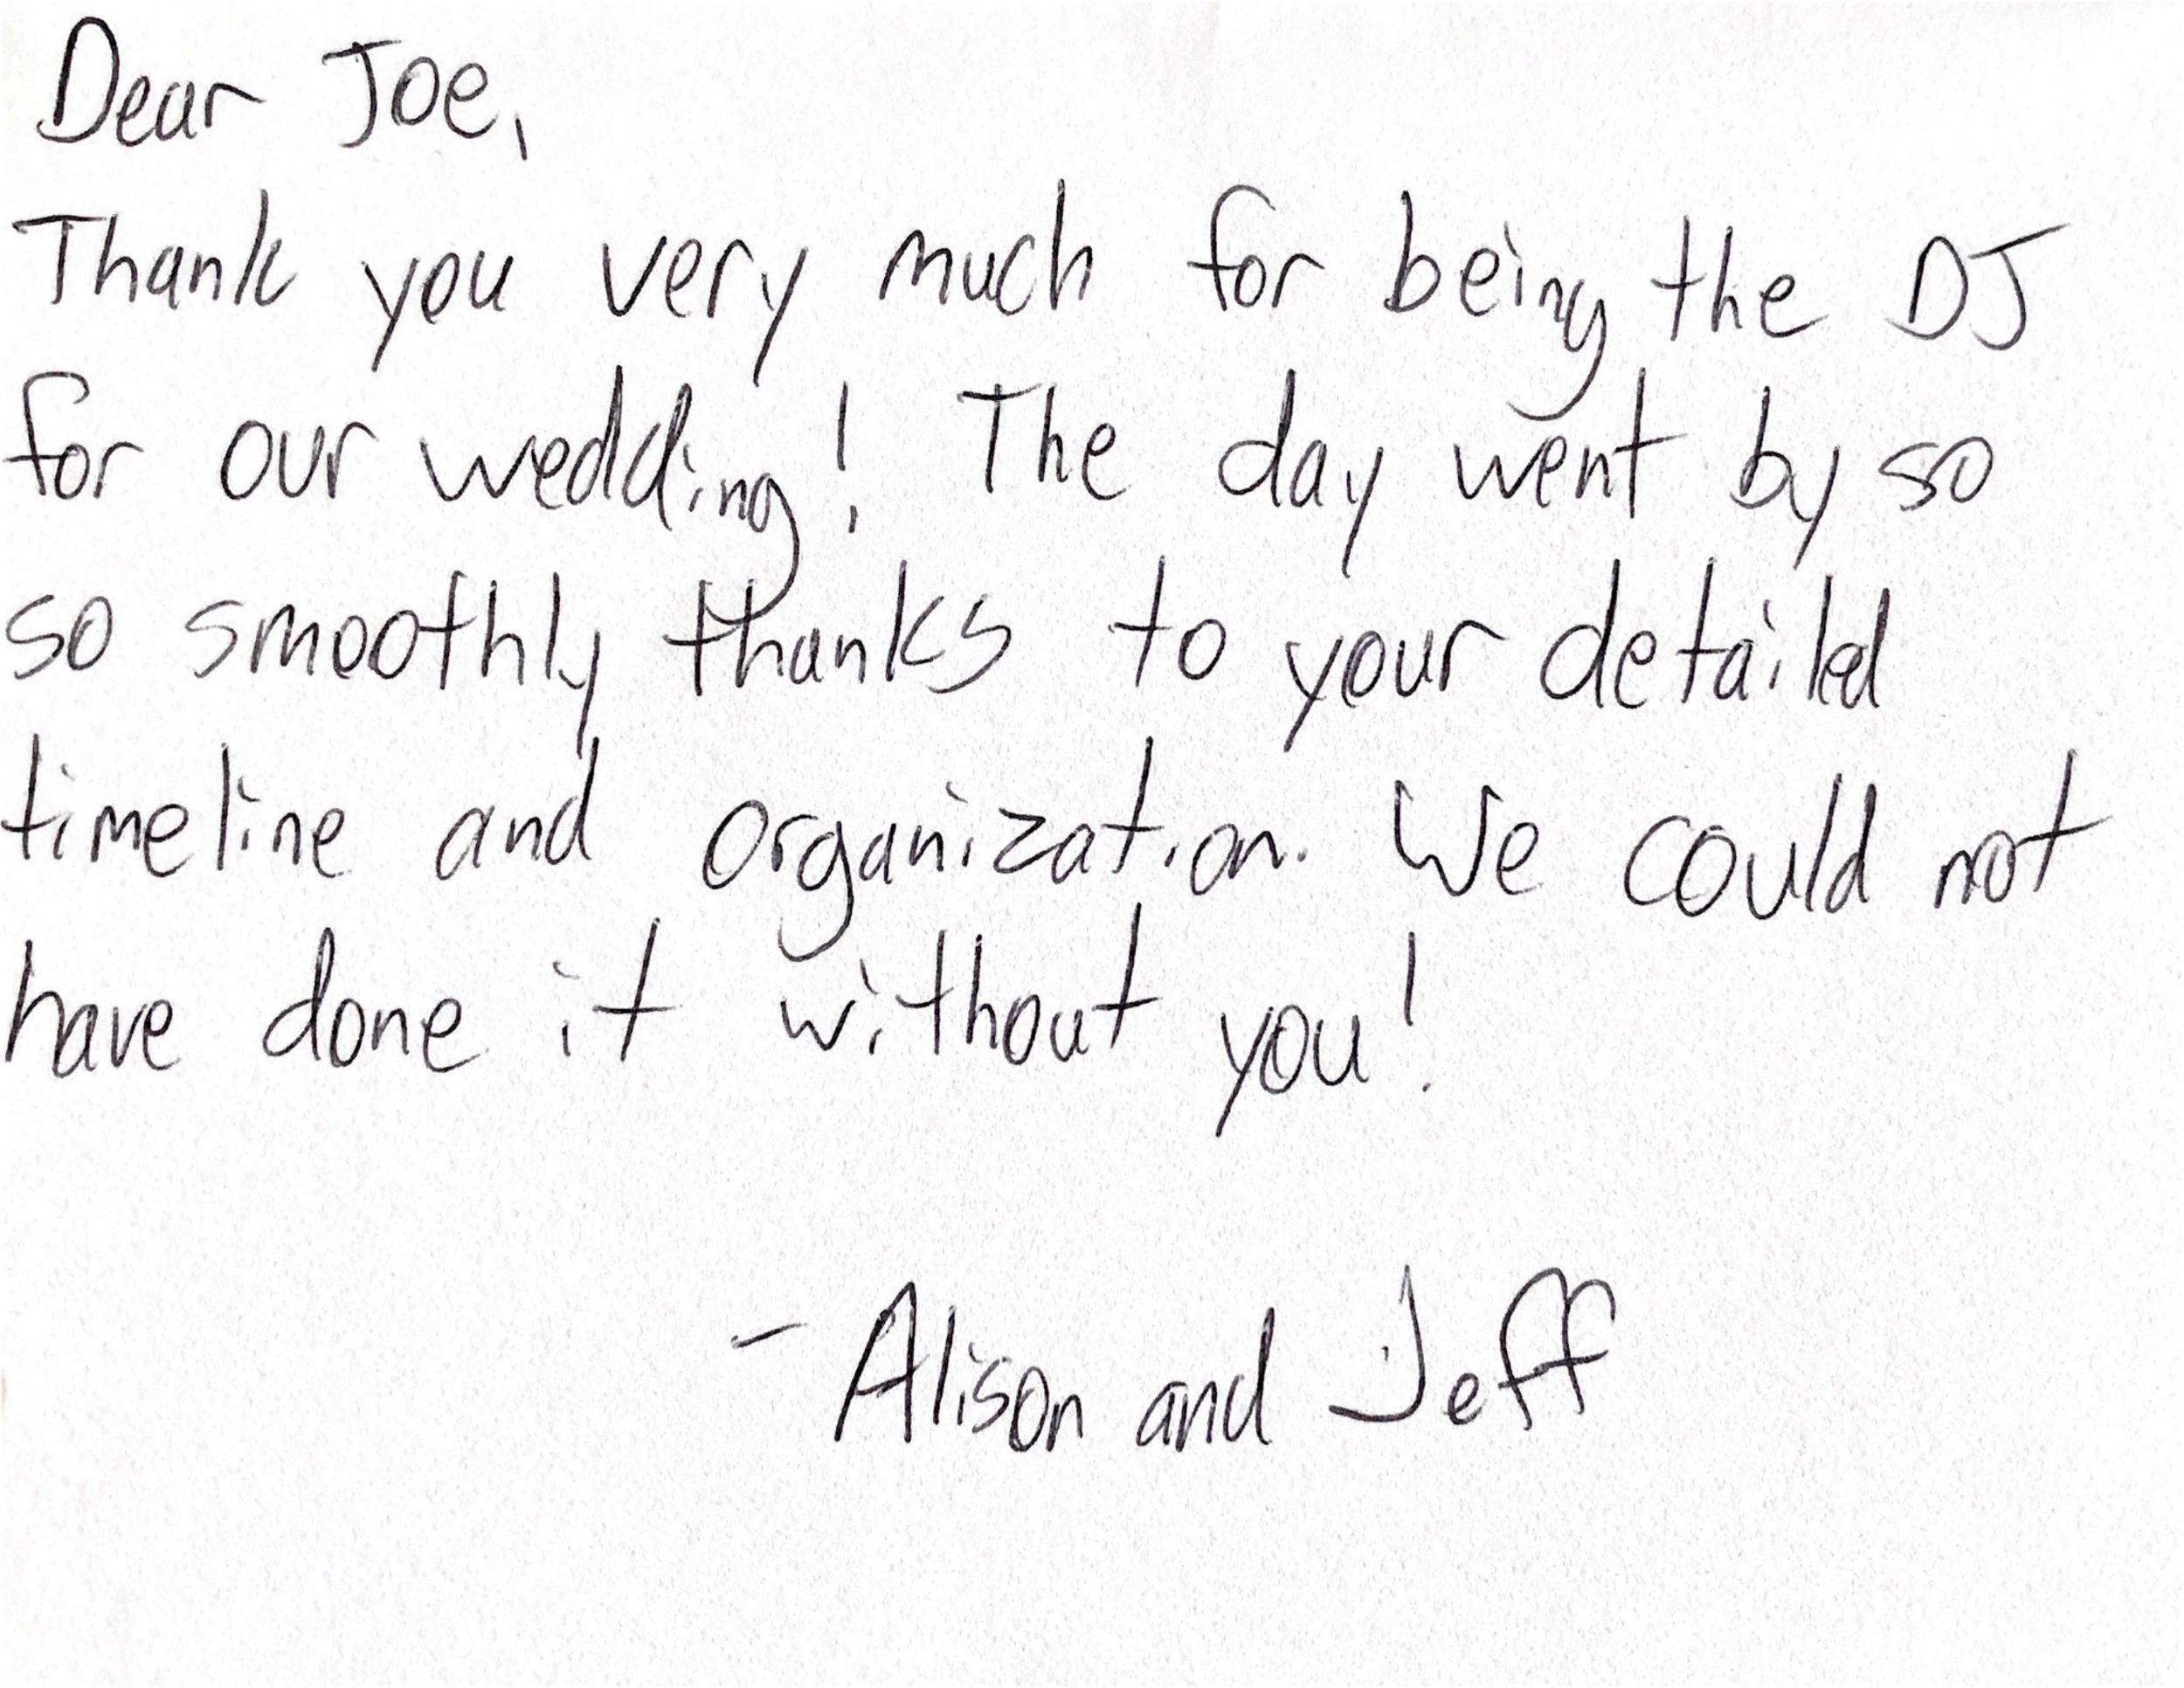 Dear Joe,
Thank you very much for being the DJ
for our wedding! The day went by so
so smoothly thanks to your detailed
timeline and organization. We could not
have done it without you!
- Alison and Jeff